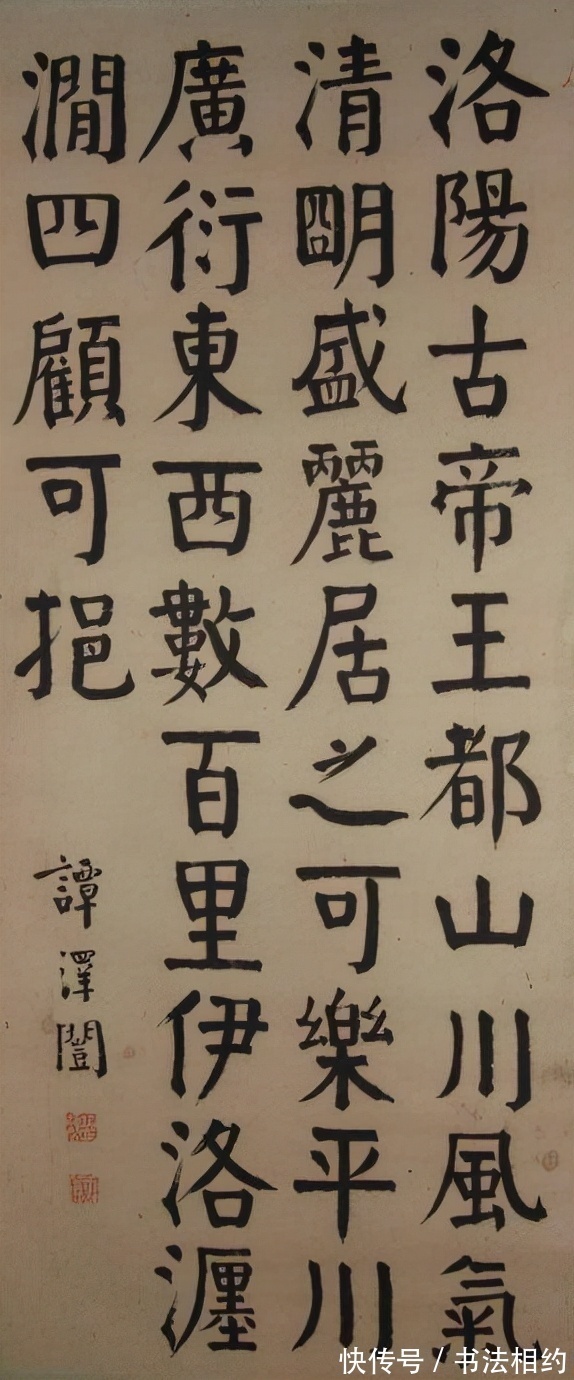 洛陽古帝王都山川風氣
清朙盛麗居之可樂平川
廣衍東西數百里伊洛瀍
澗四顧可挹
譚澤闓
快传号 / 书法相约